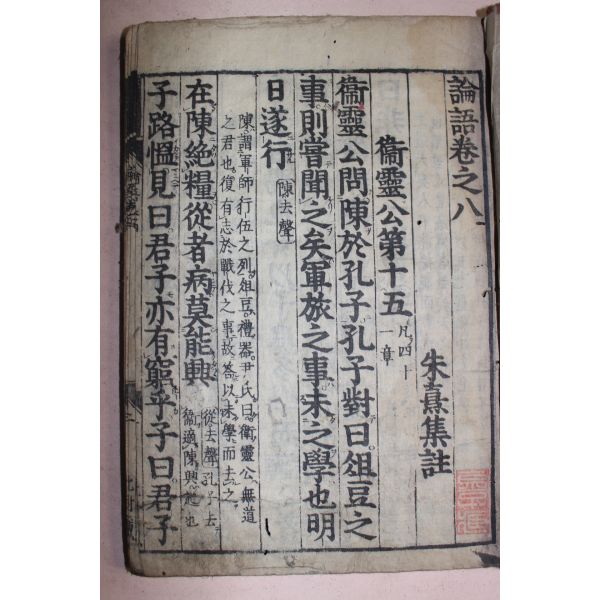 論語卷之八
朱熹集註
衞靈公第十五
凡四十
一章
衞靈公問陳於孔子孔子對曰俎豆之
事則嘗聞之矣軍旅之事未之學也明
日遂行
陳去聲
陳謂軍師行伍之列俎豆禮器尹氏曰衞靈公無道
之君也復有志於戰伐之事故答以未學而去之
在陳絶糧從者病莫能興
從去聲孔子去
衞適陳興起也
子路慍見曰君子亦有窮乎子曰君子